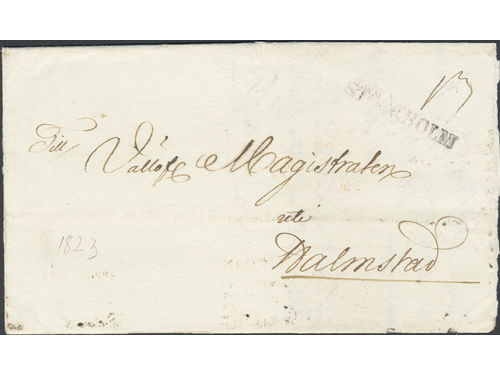 STOCKHOLM
Till
Vällofl Magistraten
uti
Halmstad
1823